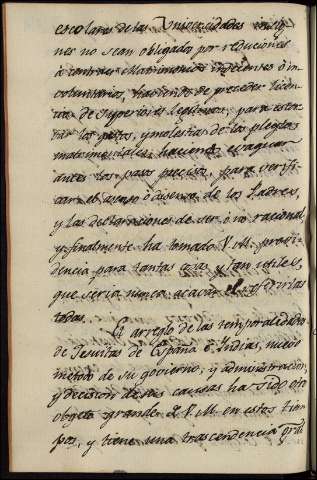 escolares de las Universidades
nes no sean obligados por seducciones
à contraer Matrimonios indecentes ò in
voluntarios, haciendo de preceder licen
cias de Superiores legitimos; para evitar
los gastos, y molestias de los pleytos
matrimoniales; haciend evaquar
antes los pasos precisos, para verifi
car el asenso ò disenso de los Padres,
y las declaraciones de ser ò no racional,
y finalmente ha tomado V. M. provi
dencia para tantas cosas y tan utiles,
que seria nunca acavar el referirlas
todas.
El arreglo de las temporalidades
de Jesuitas de España è Indias, nuevo
metodo de su govierno, y administracion,
y decision de sus causas ha sido otro
objeto grande de V. M. en estos tiem
pos, y tiene una trascendencia gral